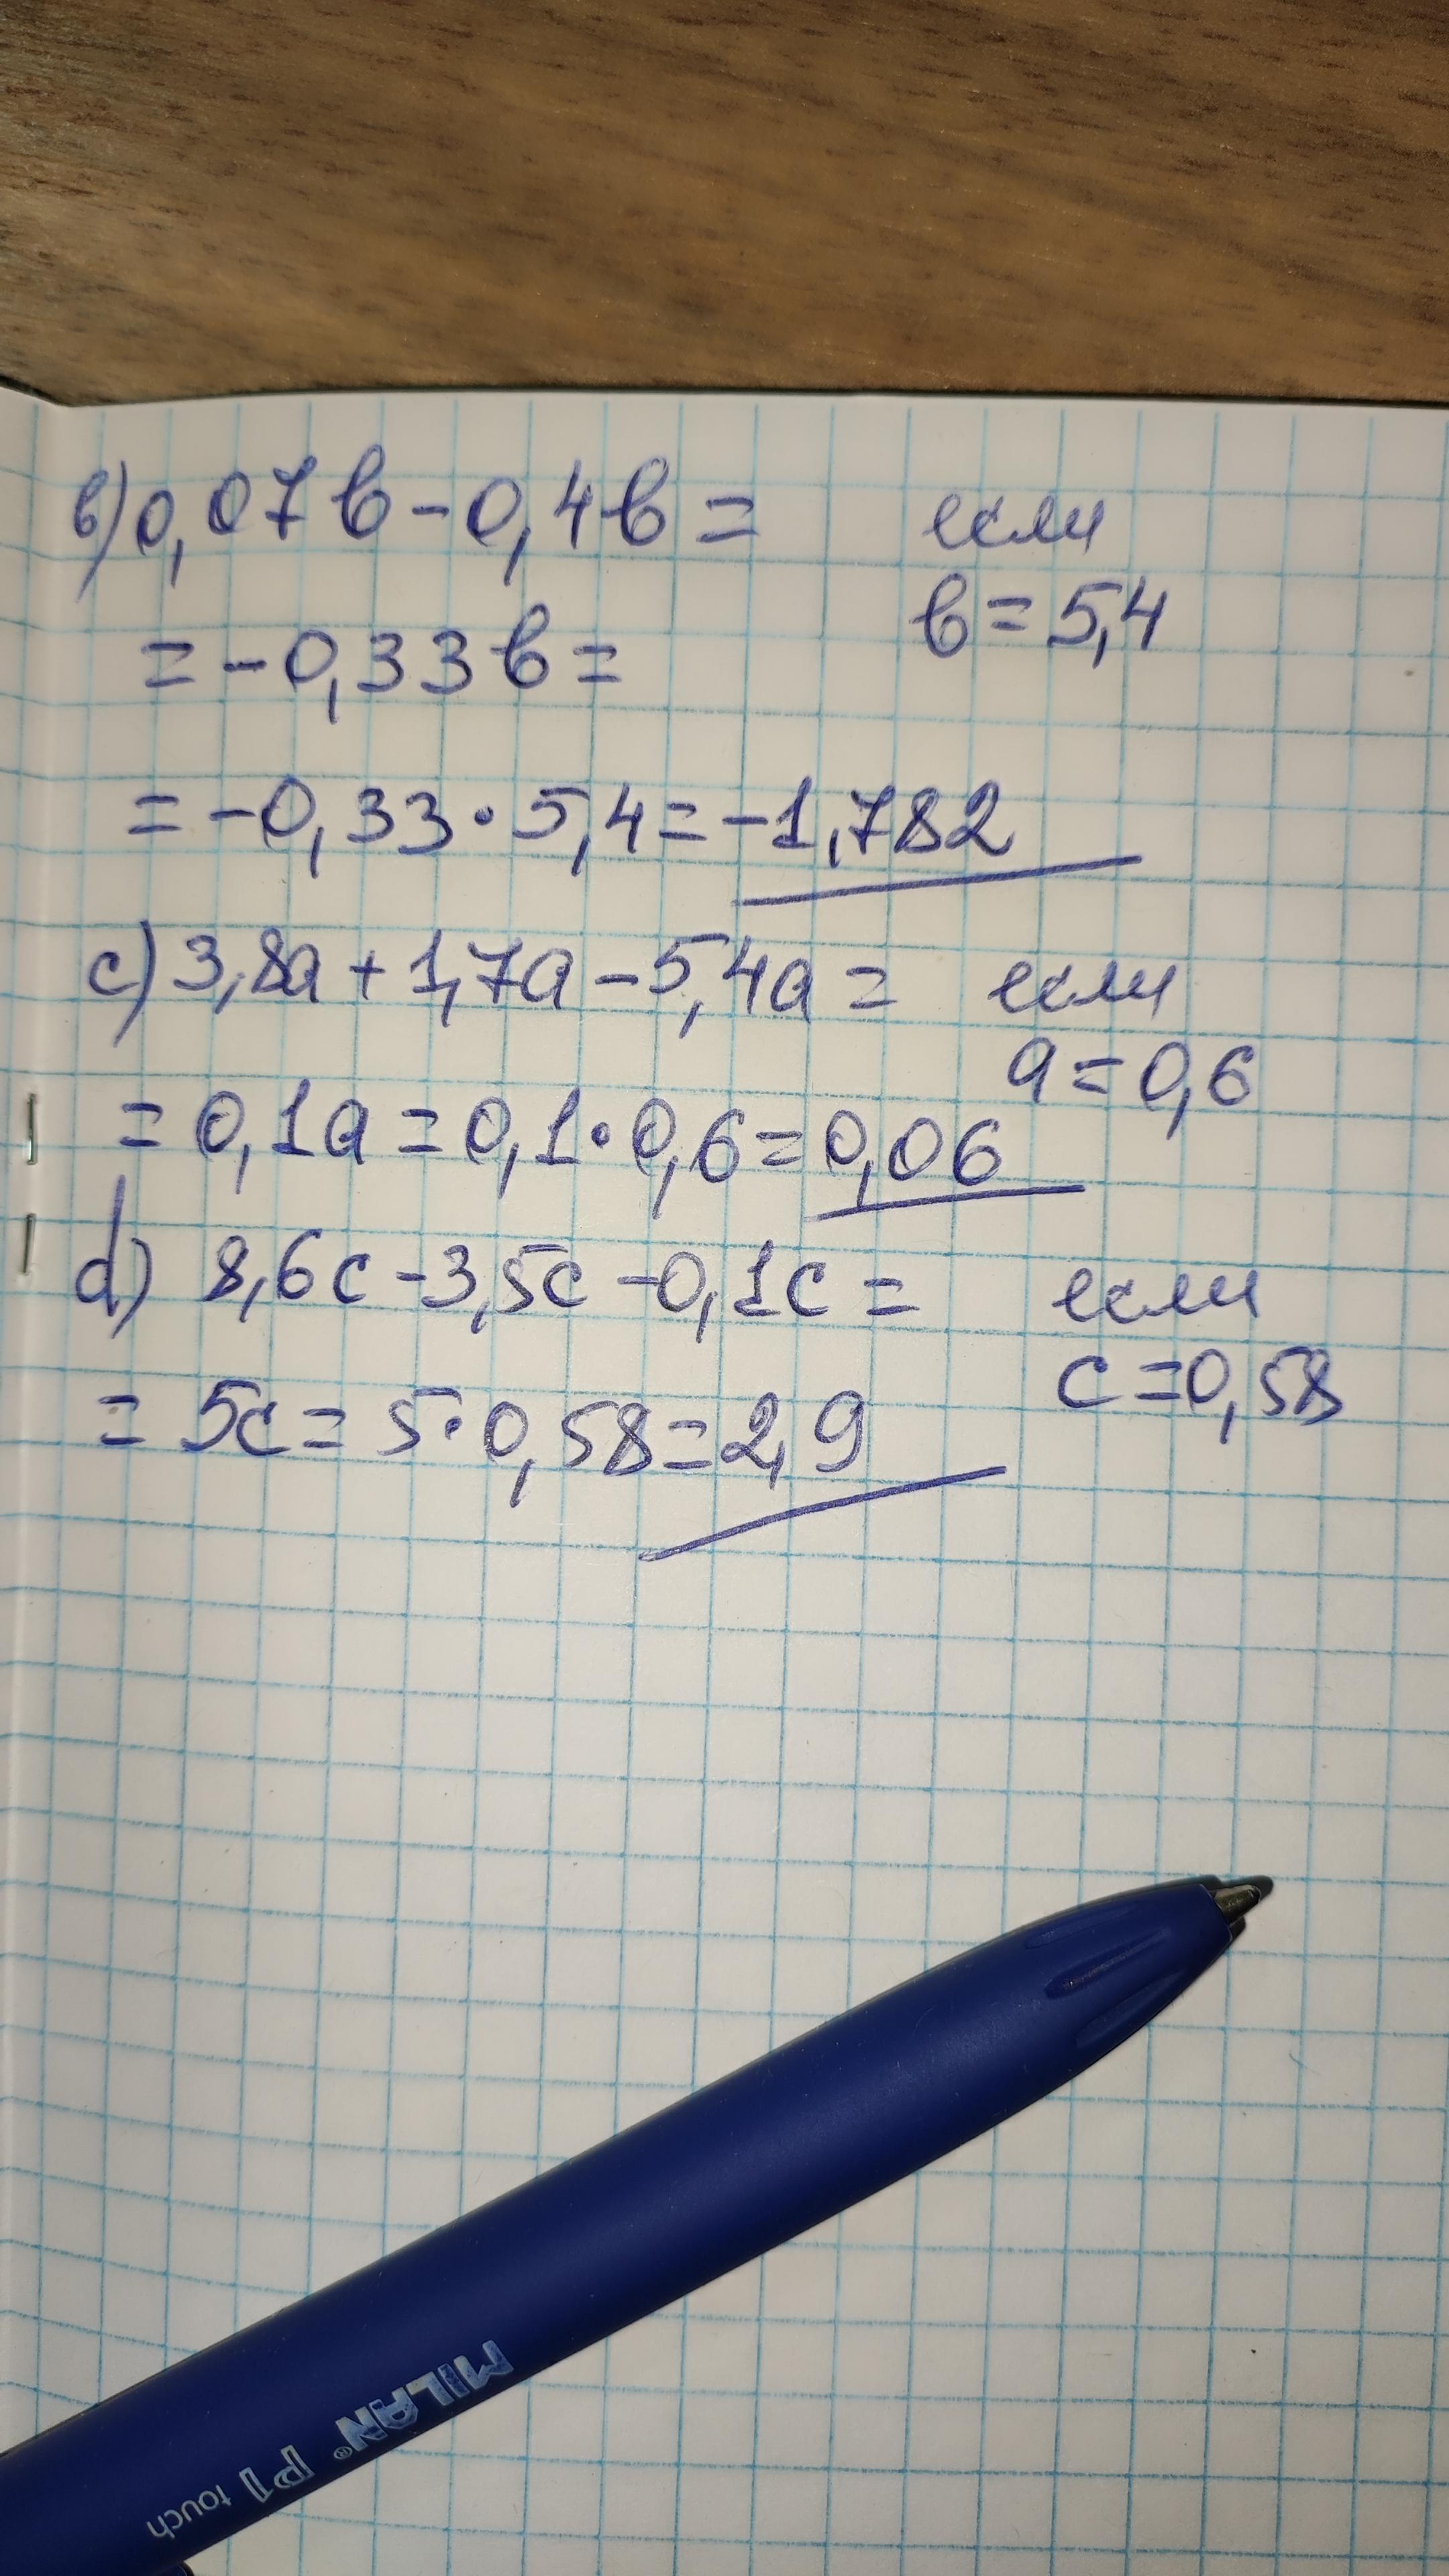 b) 0,07b - 0,4b = если
b = 5,4
= -0,33b =
= -0,33 • 5,4 = -1,782
c) 3,8a + 1,7a - 5,4a = если
a = 0,6
= 0,1a = 0,1 • 0,6 = 0,06
d) 8,6c - 3,5c - 0,1c = если
c = 0,58
= 5c = 5 • 0,58 = 2,9
MILAN® P1 touch